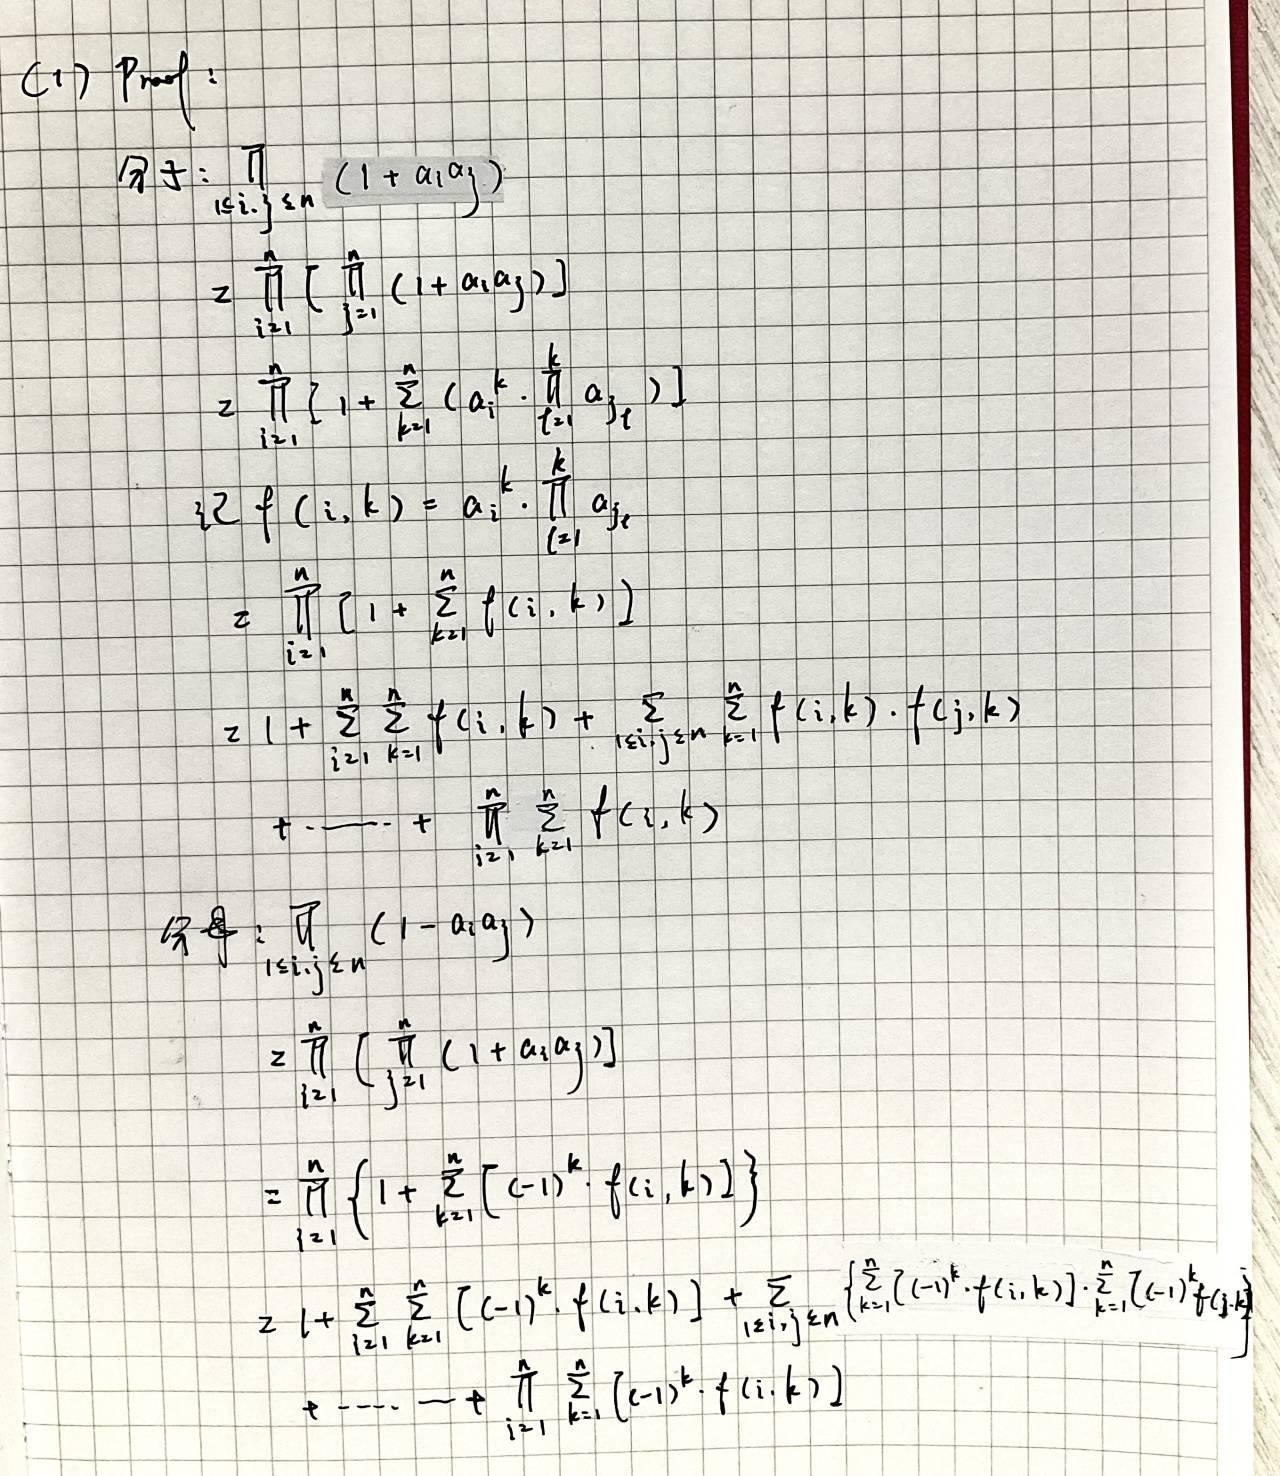 (1) Proof:
分子: ∏_{1≤i,j≤n} (1 + a_i a_j)
= ∏_{i=1}^{n} [ ∏_{j=1}^{n} (1 + a_i a_j) ]
= ∏_{i=1}^{n} [ 1 + ∑_{k=1}^{n} ( a_i^k · ∏_{t=1}^{k} a_{j_t} ) ]
记 f(i,k) = a_i^k · ∏_{t=1}^{k} a_{j_t}
= ∏_{i=1}^{n} [ 1 + ∑_{k=1}^{n} f(i,k) ]
= 1 + ∑_{i=1}^{n} ∑_{k=1}^{n} f(i,k) + ∑_{1≤i,j≤n} ∑_{k=1}^{n} f(i,k) · f(j,k)
+ ...... + ∏_{i=1}^{n} ∑_{k=1}^{n} f(i,k)
分母: ∏_{1≤i,j≤n} (1 - a_i a_j)
= ∏_{i=1}^{n} [ ∏_{j=1}^{n} (1 + a_i a_j) ]
= ∏_{i=1}^{n} { 1 + ∑_{k=1}^{n} [ (-1)^k · f(i,k) ] }
= 1 + ∑_{i=1}^{n} ∑_{k=1}^{n} [ (-1)^k · f(i,k) ] + ∑_{1≤i,j≤n} { ∑_{k=1}^{n} [ (-1)^k · f(i,k) ] · ∑_{k=1}^{n} [ (-1)^k f(j,k) ] }
+ ...... + ∏_{i=1}^{n} ∑_{k=1}^{n} [ (-1)^k · f(i,k) ]